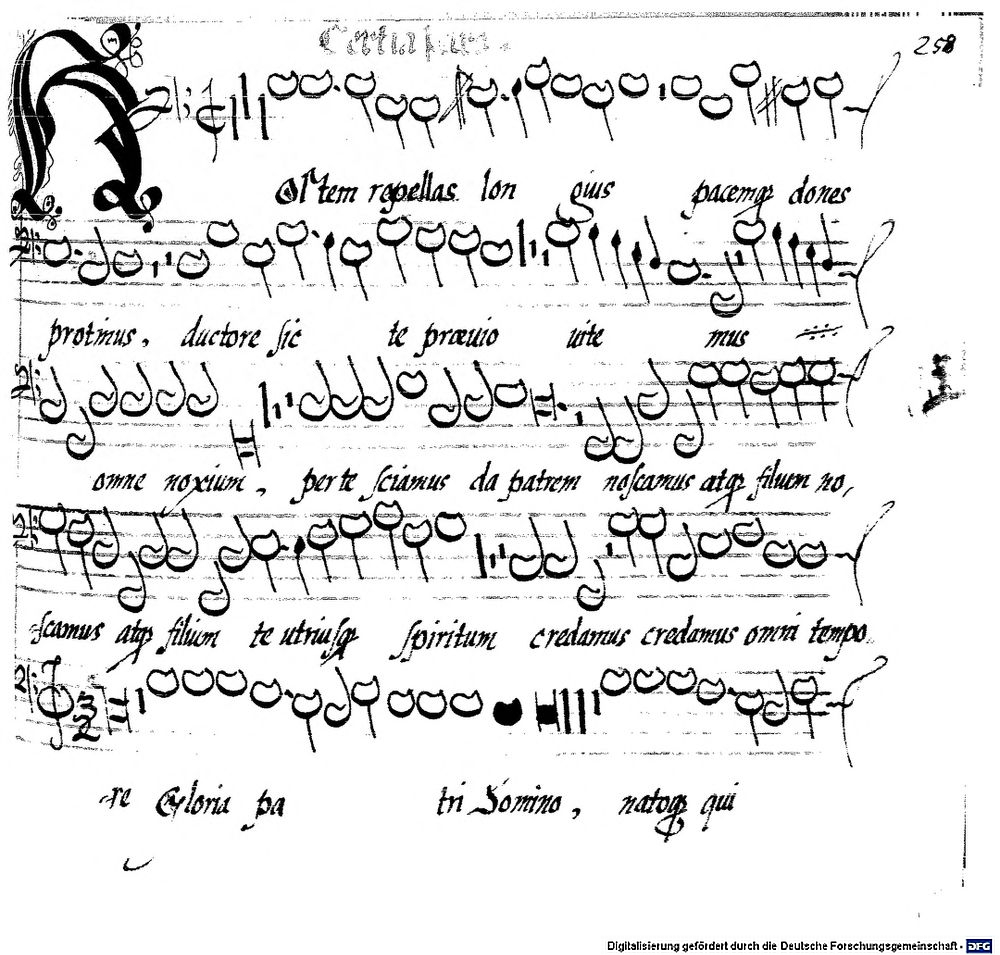 Tertia pars.
258
HOstem repellas lon gius pacemq; dones
protinus, ductore sic te præuio uite mus
omne noxium, per te sciamus da patrem noscamus atq; filium no,
scamus atq; filium te utriusq; spiritum credamus credamus omni tempo
re Gloria pa tri Domino, natoq; qui
Digitalisierung gefördert durch die Deutsche Forschungsgemeinschaft - DFG